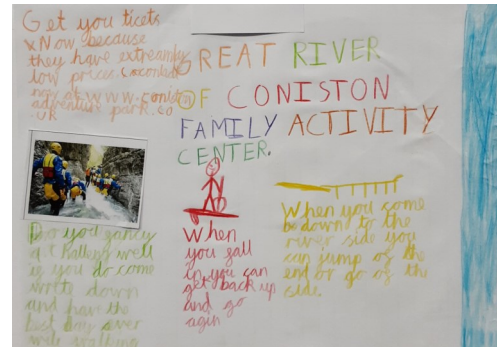 Get you ticets
Now because
they have extreamly
low prices
now at www.conis
adventure park.co
.uk
GREAT RIVER
OF CONISTON
FAMILY ACTIVITY
CENTER.
Do you fancy
well
if you do come
down
and have the
best day ever
When
you fall
in you can
get back up
and go
agin
When you come
down to the
river side you
can jump of the
end or go of the
side.